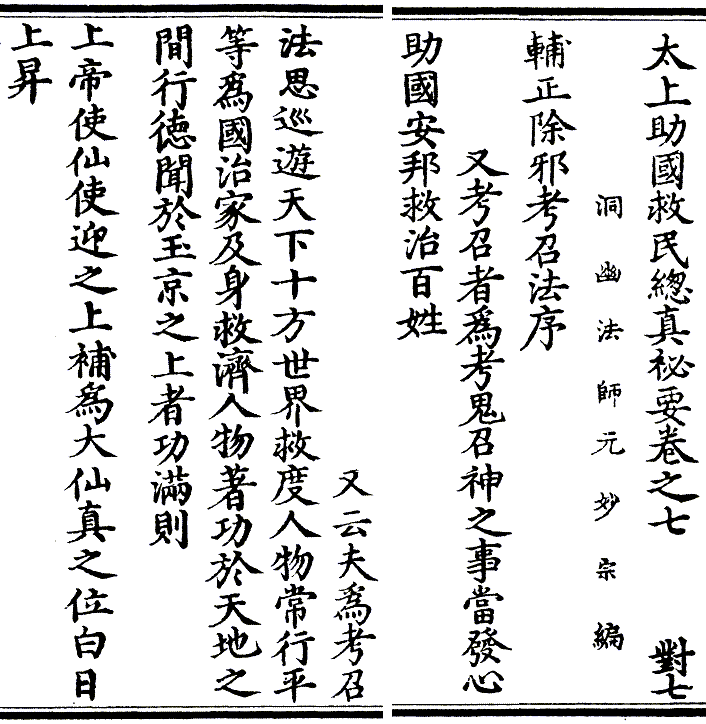 太上助國救民總真祕要卷之七 對七
洞幽法師元妙宗編
輔正除邪考召法序
又考召者爲考鬼召神之事當發心
助國安邦救治百姓
又云夫爲考召
法思巡遊天下十方世界救度人物常行平
等爲國治家及身救濟人物著功於天地之
間行德聞於玉京之上者功滿則
上帝使仙使迎之上補爲大仙真之位白日
上昇